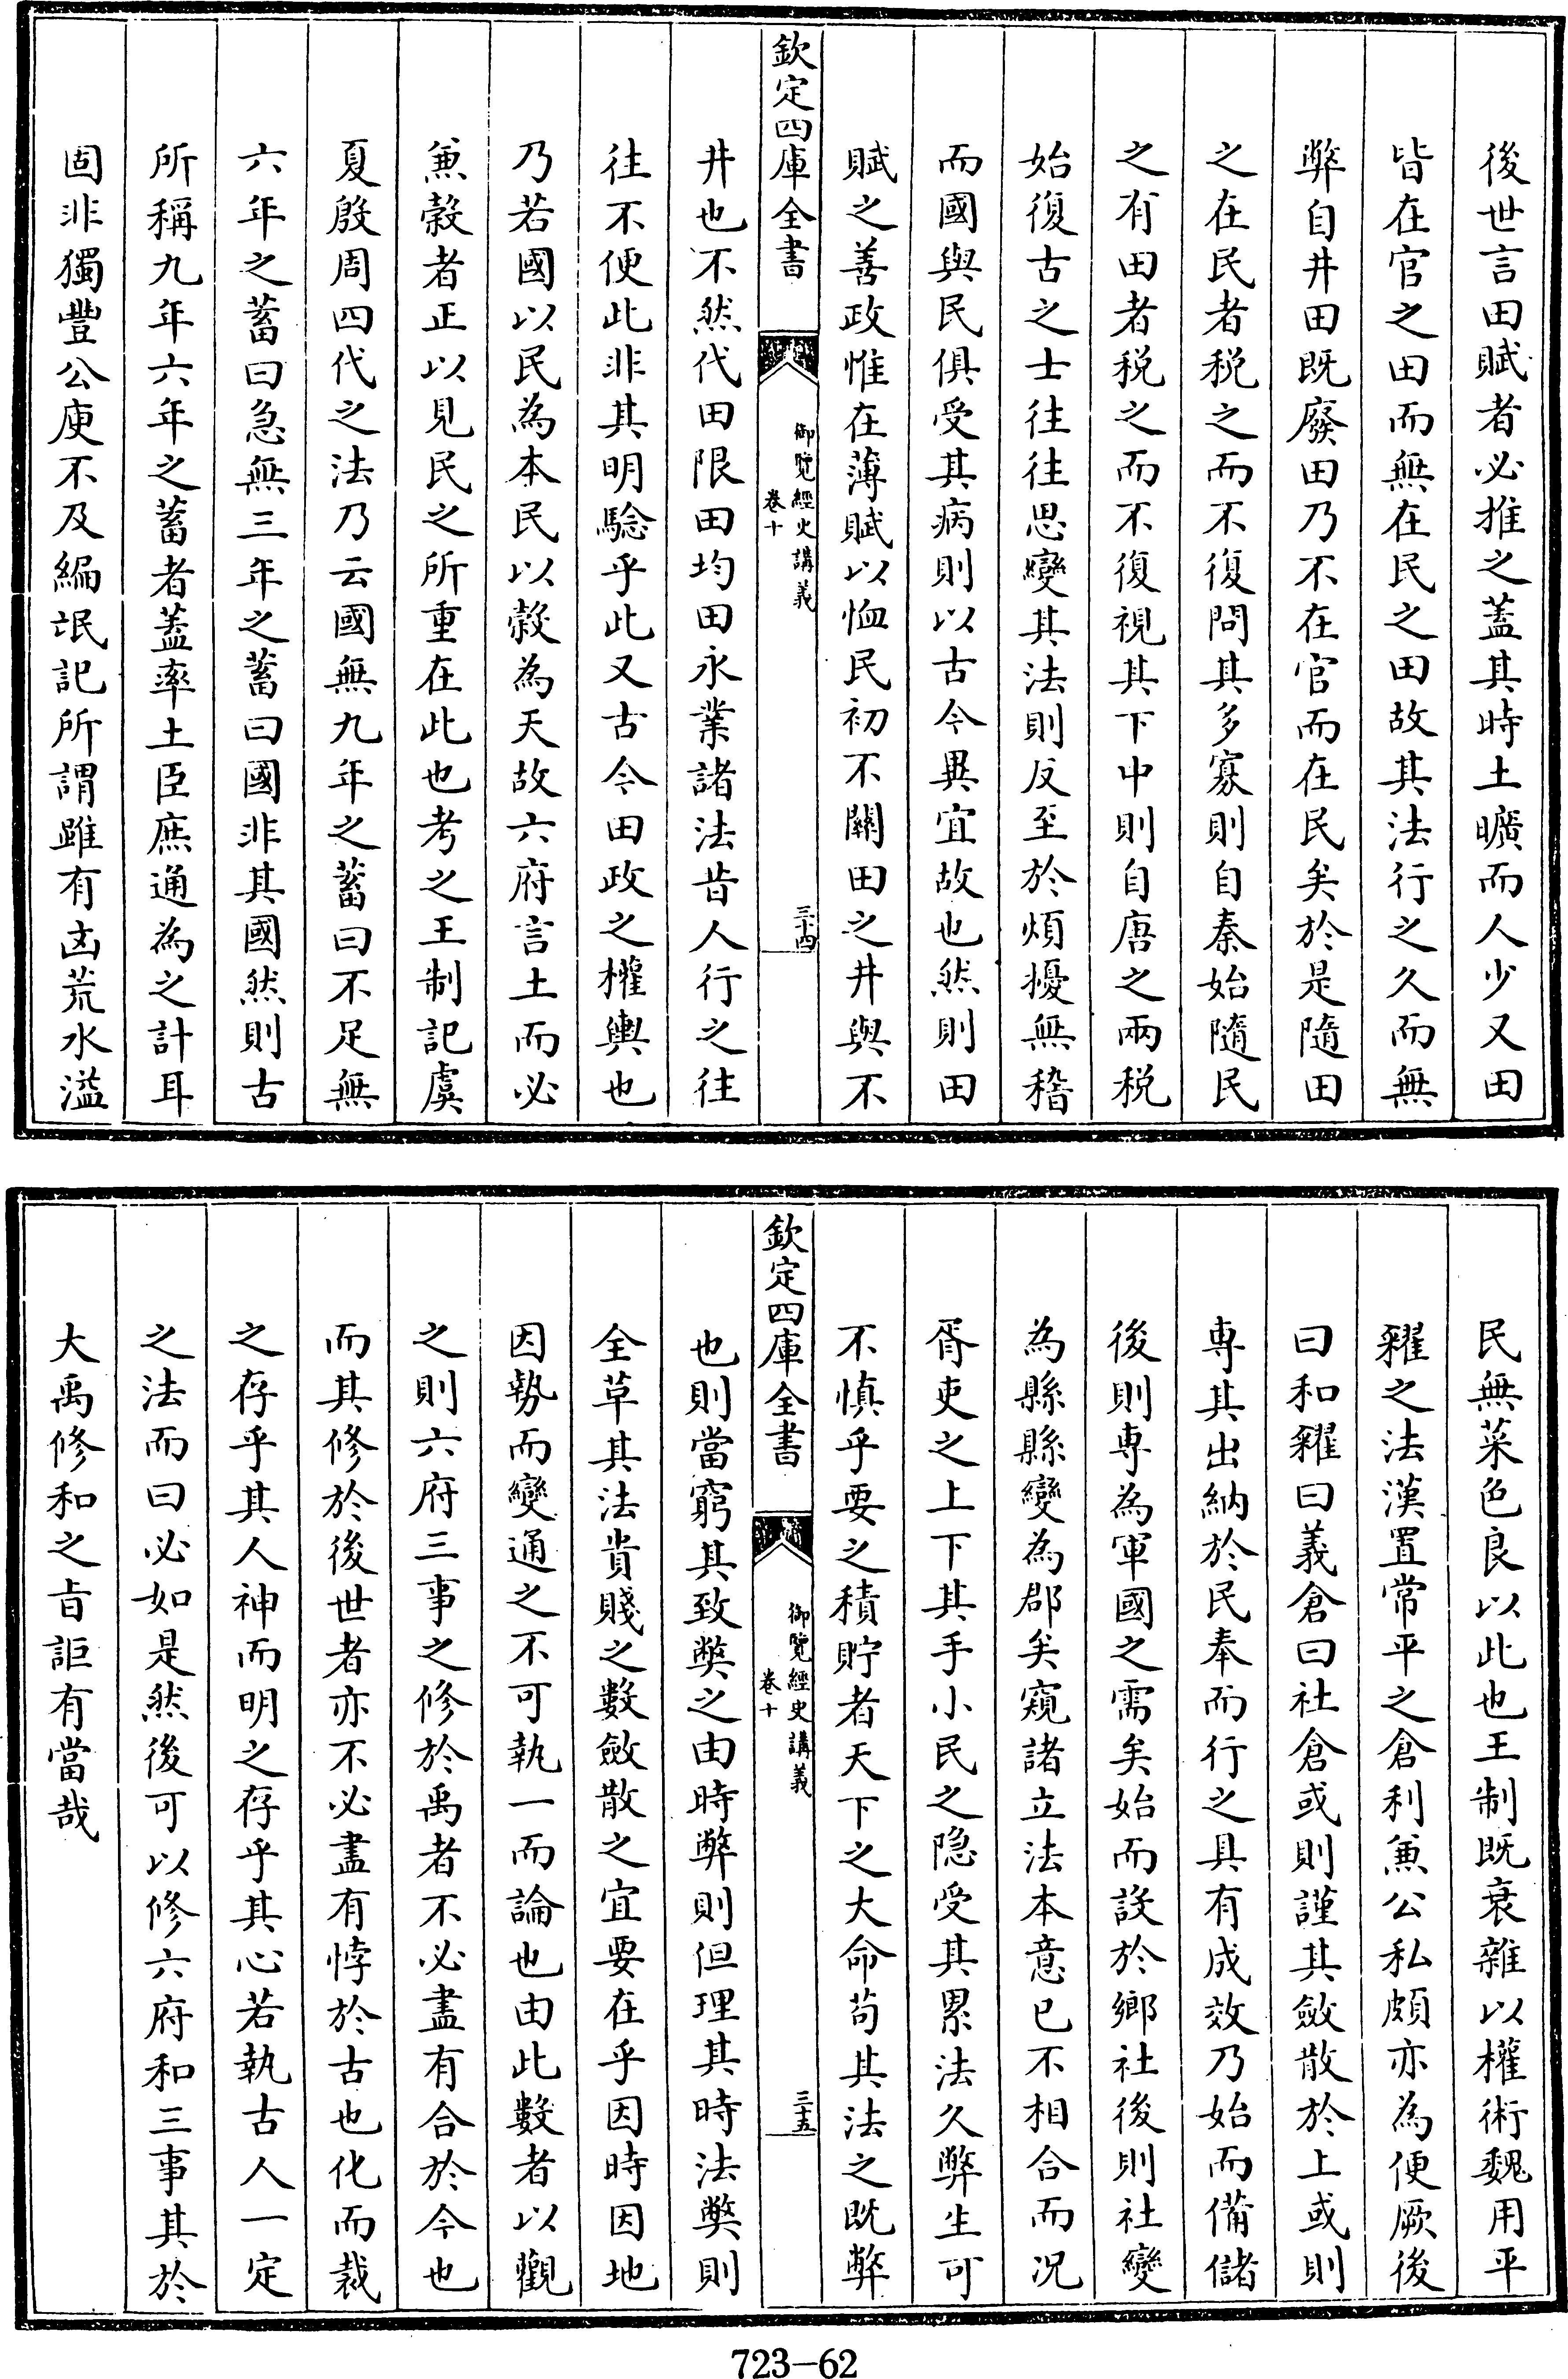 後世言田賦者必推之蓋其時土曠而人少又田
皆在官之田而無在民之田故其法行之久而無
弊自井田既廢田乃不在官而在民矣於是隨田
之在民者税之而不復問其多寡則自秦始隨民
之有田者税之而不復視其下中則自唐之兩税
始復古之士往往思變其法則反至於煩擾無稽
而國與民俱受其病則以古今異宜故也然則田
賦之善政惟在薄賦以恤民初不關田之井與不
欽定四庫全書
御覽經史講義
卷十
三十四
井也不然代田限田均田永業諸法昔人行之往
往不便此非其明驗乎此又古今田政之權輿也
乃若國以民為本民以穀為天故六府言土而必
兼穀者正以見民之所重在此也考之王制記虞
夏殷周四代之法乃云國無九年之蓄曰不足無
六年之蓄曰急無三年之蓄曰國非其國然則古
所稱九年六年之蓄者蓋率土臣庶通為之計耳
固非獨豐公庾不及編氓記所謂雖有凶荒水溢
民無菜色良以此也王制既衰雜以權術魏用平
糴之法漢置常平之倉利兼公私頗亦為便厥後
曰和糴曰義倉曰社倉或則謹其斂散於上或則
專其出納於民奉而行之具有成效乃始而備儲
後則專為軍國之需矣始而設於鄉社後則社變
為縣縣變為郡矣窺諸立法本意已不相合而况
胥吏之上下其手小民之隐受其累法久弊生可
不慎乎要之積貯者天下之大命苟其法之既弊
欽定四庫全書
御覽經史講義
卷十
三十五
也則當窮其致獘之由時弊則但理其時法獘則
全草其法貴賤之數斂散之宜要在乎因時因地
因勢而變通之不可執一而論也由此數者以觀
之則六府三事之修於禹者不必盡有合於今也
而其修於後世者亦不必盡有悖於古也化而裁
之存乎其人神而明之存乎其心若執古人一定
之法而曰必如是然後可以修六府和三事其於
大禹修和之旨詎有當哉
723-62